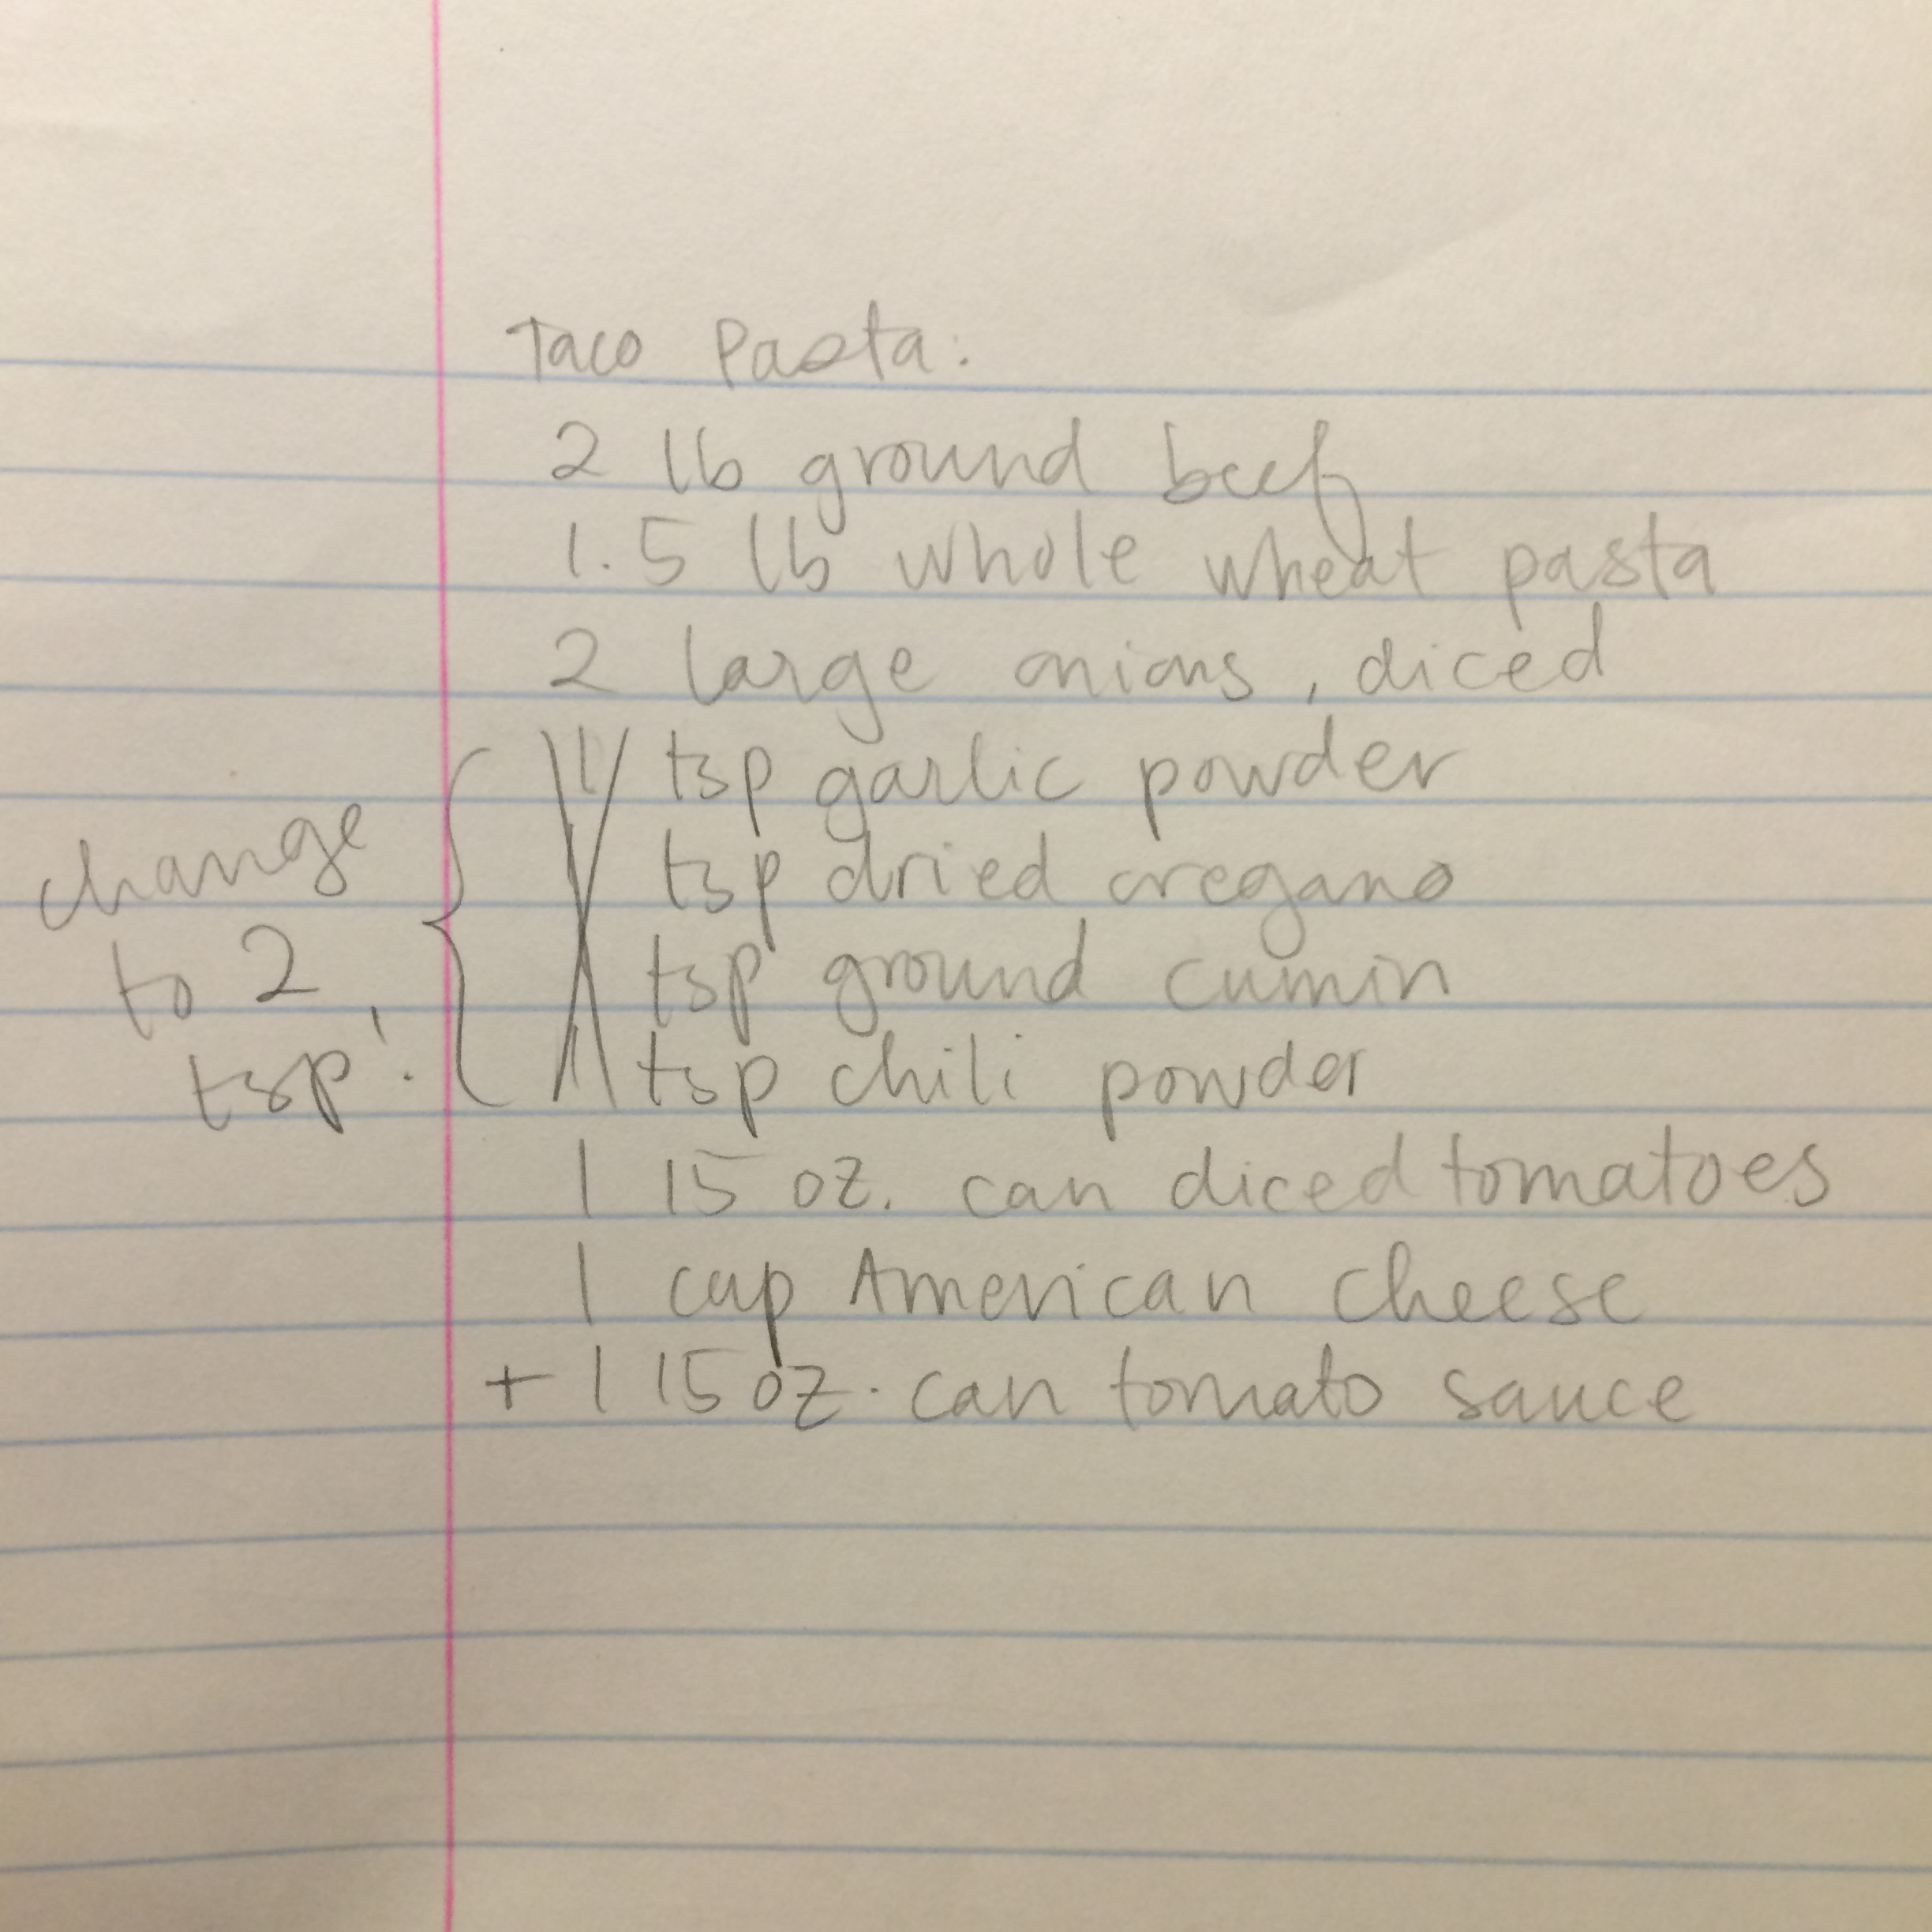 Taco Pasta:
2 lb ground beef
1.5 lb whole wheat pasta
2 large onions, diced
1 tsp garlic powder
1 tsp dried oregano
1 tsp ground cumin
1 tsp chili powder
change
to 2
tsp!
1 15 oz. can diced tomatoes
1 cup American cheese
+ 1 15 oz. can tomato sauce